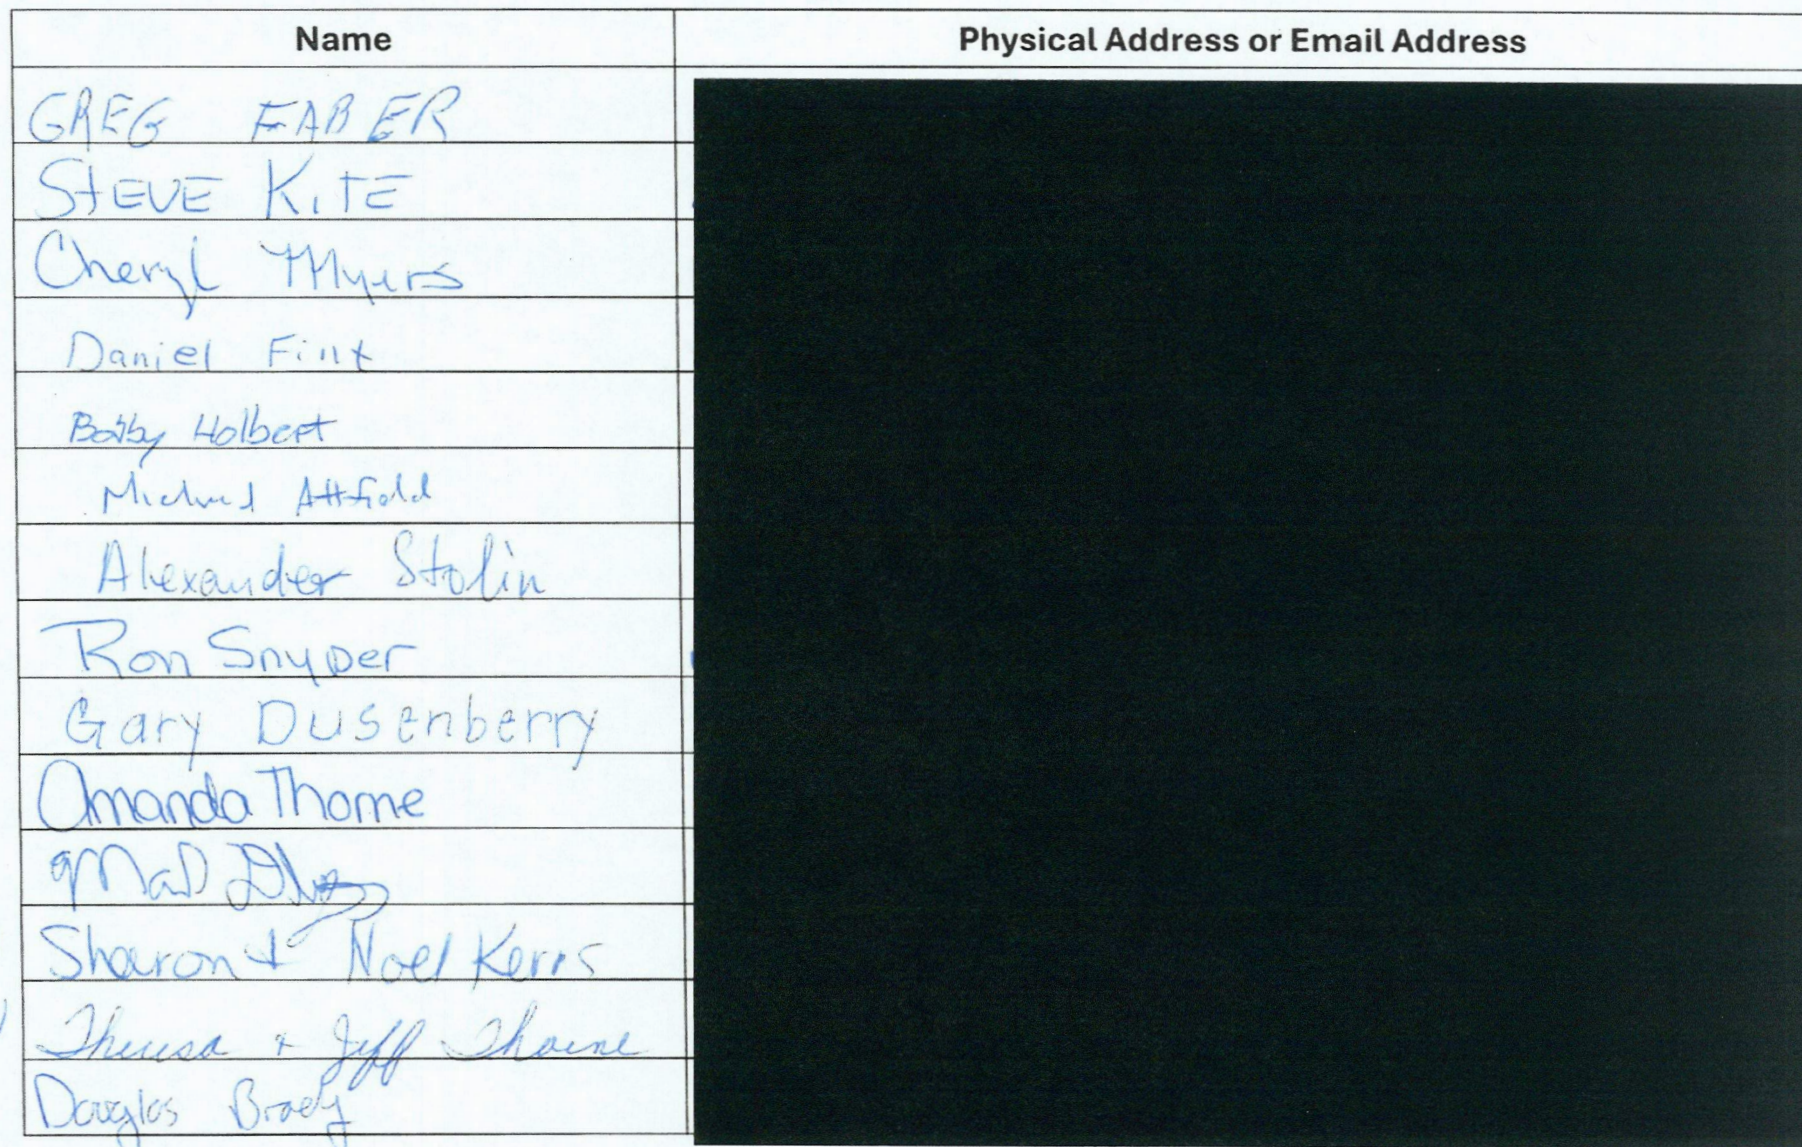 Name Physical Address or Email Address
GREG FABER
STEVE KITE
Cheryl Myers
Daniel Fint
Bobby Holbert
Michael Attfield
Alexander Stolin
Ron Snyder
Gary Dusenberry
Amanda Thorne
Sharon + Noel Kerns
Theresa + Jeff Thorne
Douglas Brady